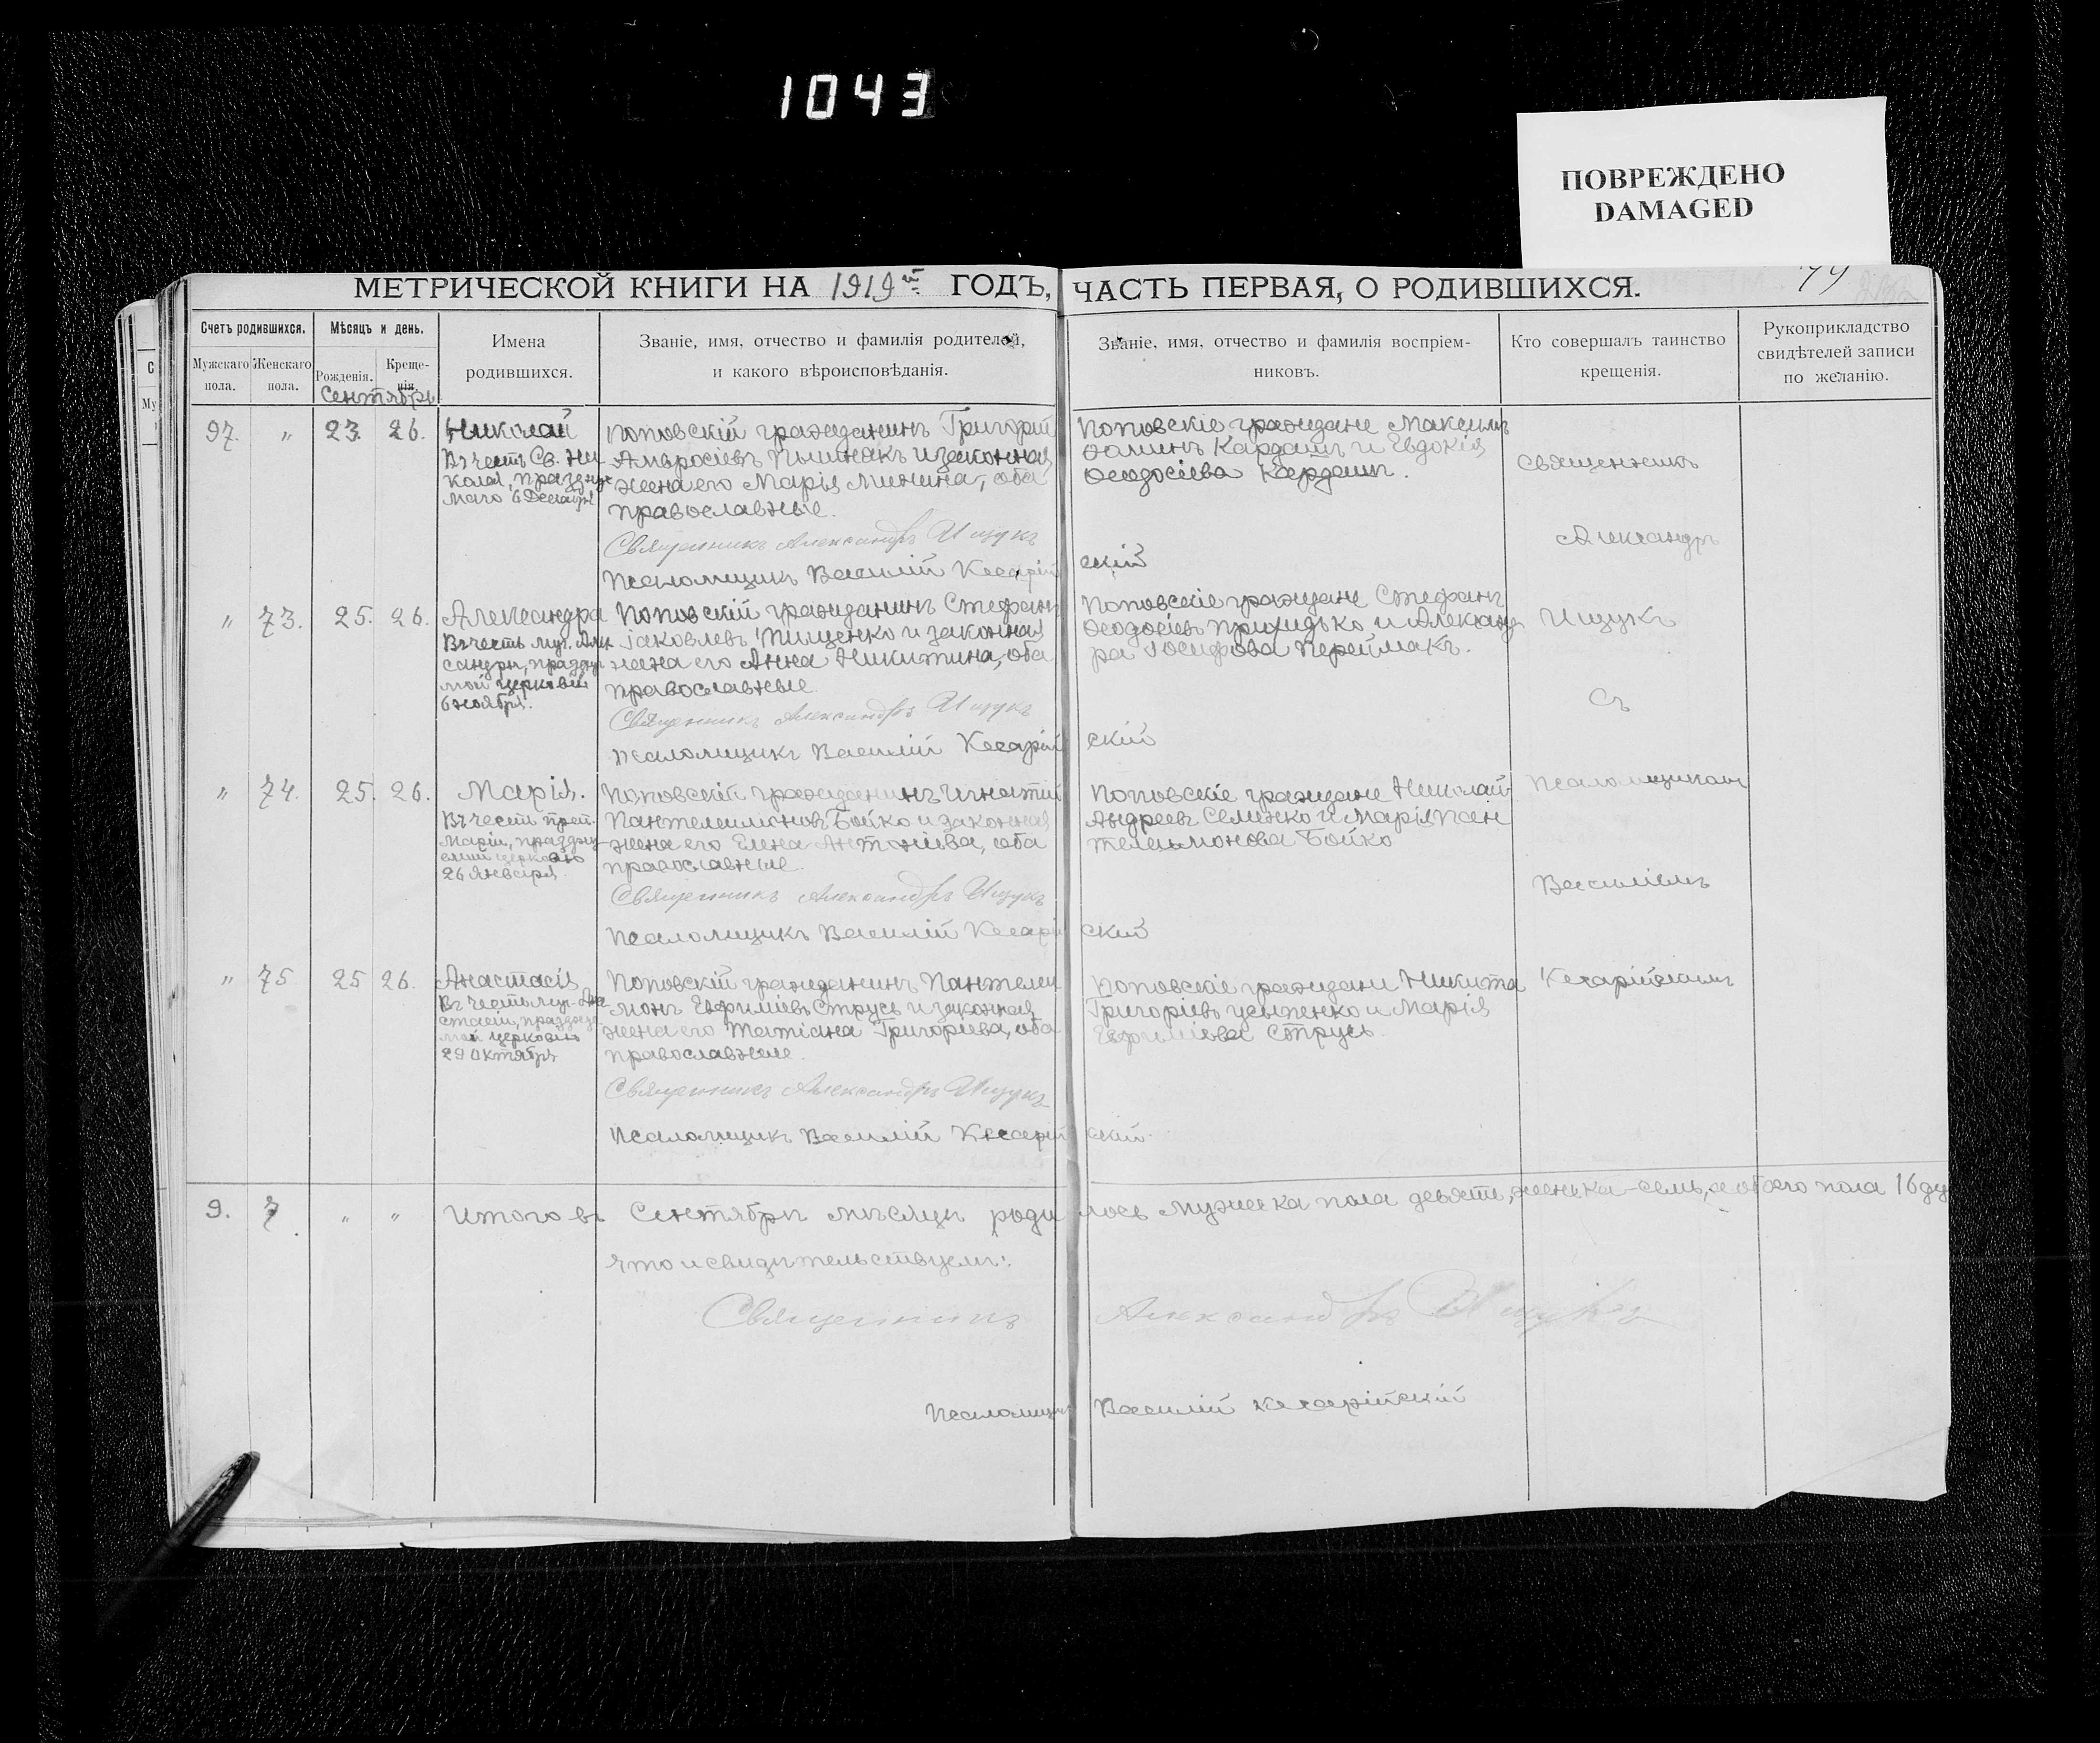 1043
ПОВРЕЖДЕНО
DAMAGED
МЕТРИЧЕСКОЙ КНИГИ НА 1919й ГОДЪ, ЧАСТЬ ПЕРВАЯ, О РОДИВШИХСЯ.
Счетъ родившихся.
Мужскаго пола.
Женскаго пола.
Мѣсяцъ и день.
Рожденія.
Крещенія.
Сентябрь
Имена
родившихся.
Званіе, имя, отчество и фамилія родителей,
и какого вѣроисповѣданія.
Званіе, имя, отчество и фамилія воспріем-
никовъ.
Кто совершалъ таинство
крещенія.
Рукоприкладство
свидѣтелей записи
по желанію.
97. " 23. 26.
Николай
Въ честь Св. Ни-
колая, праздну
маго 6 Декабря
Поповскій гражданинъ Григорій
Амвросіевъ и законная
жена его Марія Минина, оба
православные.
Священникъ Александръ Ищукъ
Псаломщикъ Василій Кесарійскій
Поповскіе граждане Максимъ
Кардашъ и Евдокія
Ѳеодосіева Кардашъ.
" 73. 25. 26.
Александра
Въ честь муч. Алек
сандры, праздну
мой церковію
6 ноября.
Поповскій гражданинъ Стефанъ
Іаковлевъ Пищенко и законная
жена его Анна Никитина, оба
православные
Священникъ Александръ Ищукъ
Псаломщикъ Василій Кесарійскій
Поповскіе граждане Стефанъ
Ѳеодосіевъ Приходько и Александ
ра Іосифова Переймакъ.
" 74. 25. 26.
Марія.
Въ честь преп.
Маріи, праздну
емый церковію
26 Января
Поповскій гражданинъ Игнатій
Пантелеимоновъ Бойко и законная
жена его Елена Антоніева, оба
православные.
Священникъ Александръ Ищукъ
Псаломщикъ Василій Кесарійскій
Поповскіе граждане Николай
Андреевъ Семенко и Марія Пан
телеимонова Бойко
" 75 25 26.
Анастасія
Въ честь муч. Ана
стасіи, праздну
мой церковію
29 Октября
Поповскій гражданинъ Пантелеи
монъ Евфиміевъ Струсь и законная
жена его Татіана Григоріева, оба
православные.
Священникъ Александръ Ищукъ
Псаломщикъ Василій Кесарійскій
Поповскіе граждани Никита
Григоріевъ и Марія
Евфиміева Струсь.
Священникъ
Александръ
Ищукъ
Съ
Псаломщикомъ
Василіемъ
Кесарійскимъ
9. 7 " " Итого въ Сентябрѣ мѣсяцѣ родилось мужеска пола девять, женска - семь, а обоего пола 16 ду
что и свидѣтельствуемъ:
Священникъ Александръ Ищукъ
Псаломщикъ Василій Кесарійскій